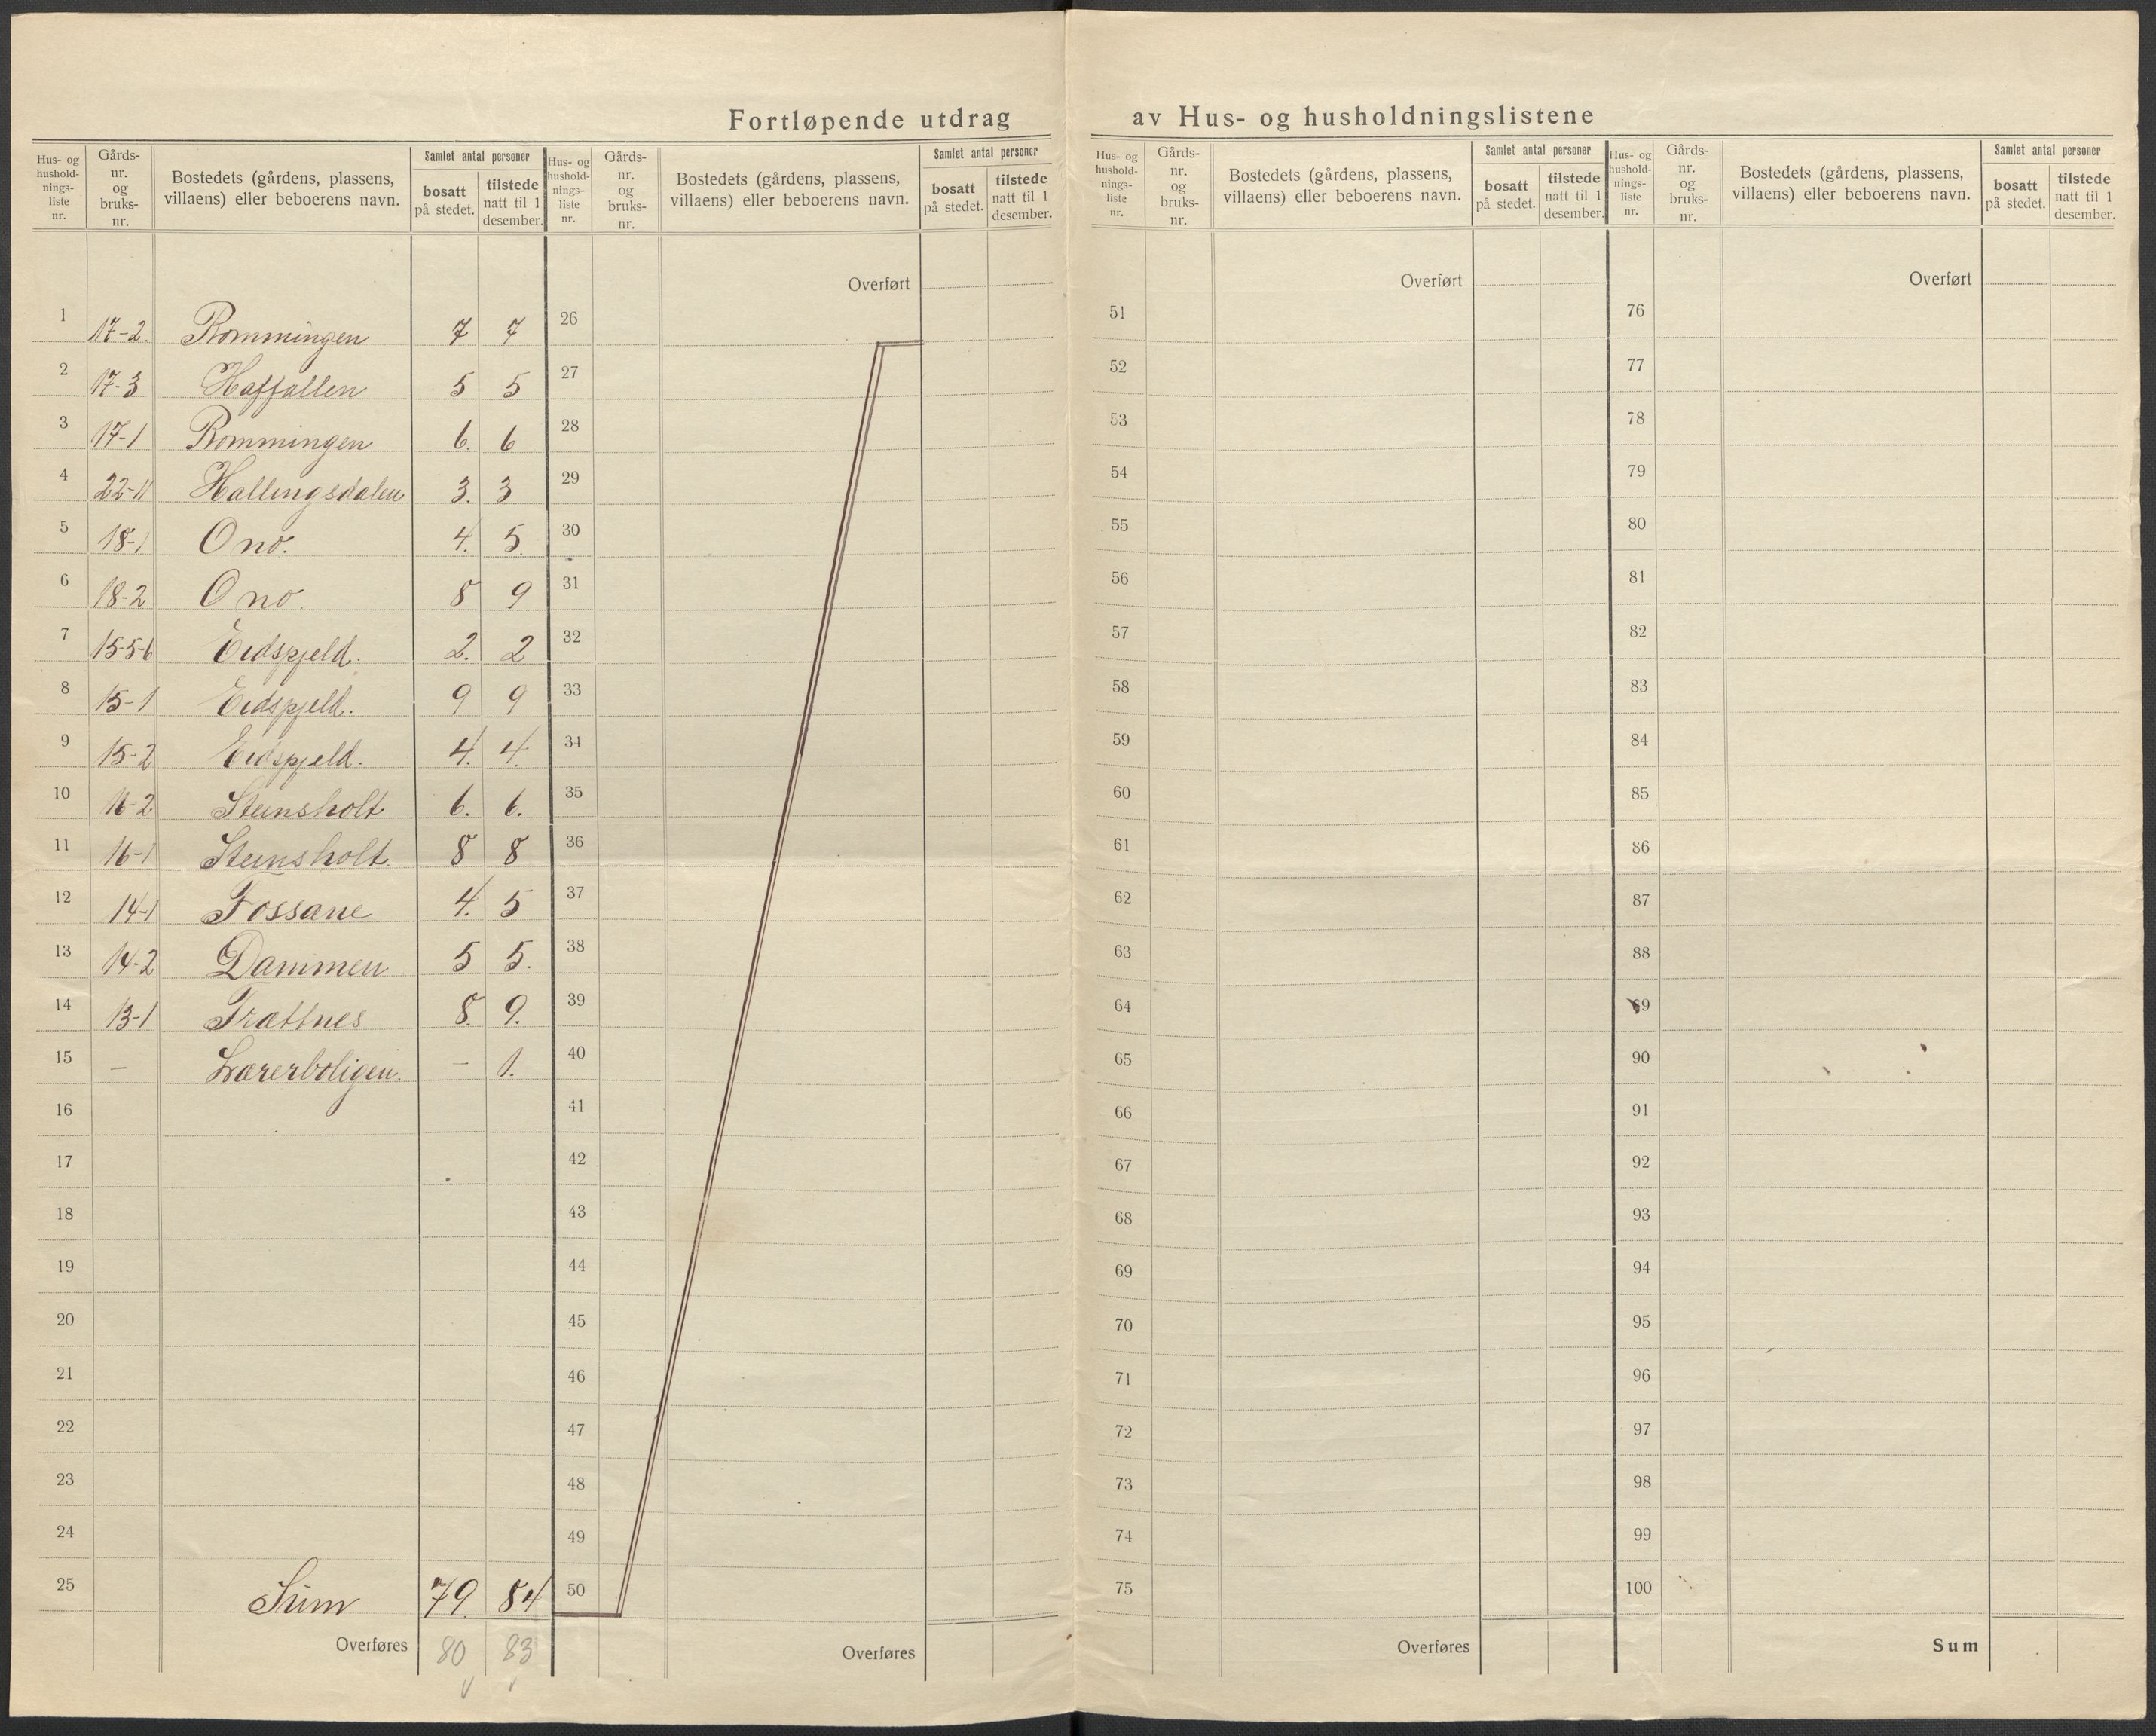 Fortløpende utdrag av Hus- og husholdningslistene
Hus- og hushold- nings- liste nr.
Gårds- nr. og bruks- nr.
Bostedets (gårdens, plassens, villaens) eller beboerens navn.
Samlet antal personer
bosatt på stedet.
tilstede natt til 1 desember.
Hus- og hushold- nings- liste nr.
Gårds- nr. og bruks- nr.
Bostedets (gårdens, plassens, villaens) eller beboerens navn.
Samlet antal personer
bosatt på stedet.
tilstede natt til 1 desember.
Hus- og hushold- nings- liste nr.
Gårds- nr. og bruks- nr.
Bostedets (gårdens, plassens, villaens) eller beboerens navn.
Samlet antal personer
bosatt på stedet.
tilstede natt til 1 desember.
Hus- og hushold- nings- liste nr.
Gårds- nr. og bruks- nr.
Bostedets (gårdens, plassens, villaens) eller beboerens navn.
Samlet antal personer
bosatt på stedet.
tilstede natt til 1 desember.
Overført Overført Overført
1 17-2. Rommingen 7 7 26 51 76
2 17-3 Haffallen 5 5 27 52 77
3 17-1 Rommingen 6. 6 28 53 78
4 22-11 Hallingsdalen 3. 3 29 54 79
5 18-1 Ono. 4. 5. 30 55 80
6 18-2 Ono. 8 9 31 56 81
7 15-5-6 Eidspjeld. 2. 2 32 57 82
8 15-1 Eidspjeld. 9 9 33 58 83
9 15-2 Eidspjeld. 4. 4. 34 59 84
10 16-2 Steinsholt 6. 6. 35 60 85
11 16-1 Steinsholt. 8 8 36 61 86
12 14-1 Fossane 4. 5 37 62 87
13 14-2 Dammen 5 5. 38 63 88
14 13-1 Trattnes 8. 9. 39 64 89
15 — Lærerboligen. — 1. 40 65 90
16 41 66 91
17 42 67 92
18 43 68 93
19 44 69 94
20 45 70 95
21 46 71 96
22 47 72 97
23 48 73 98
24 49 74 99
25 Sum 79. 84 50 75 100
Overføres 80 83 Overføres Overføres Sum